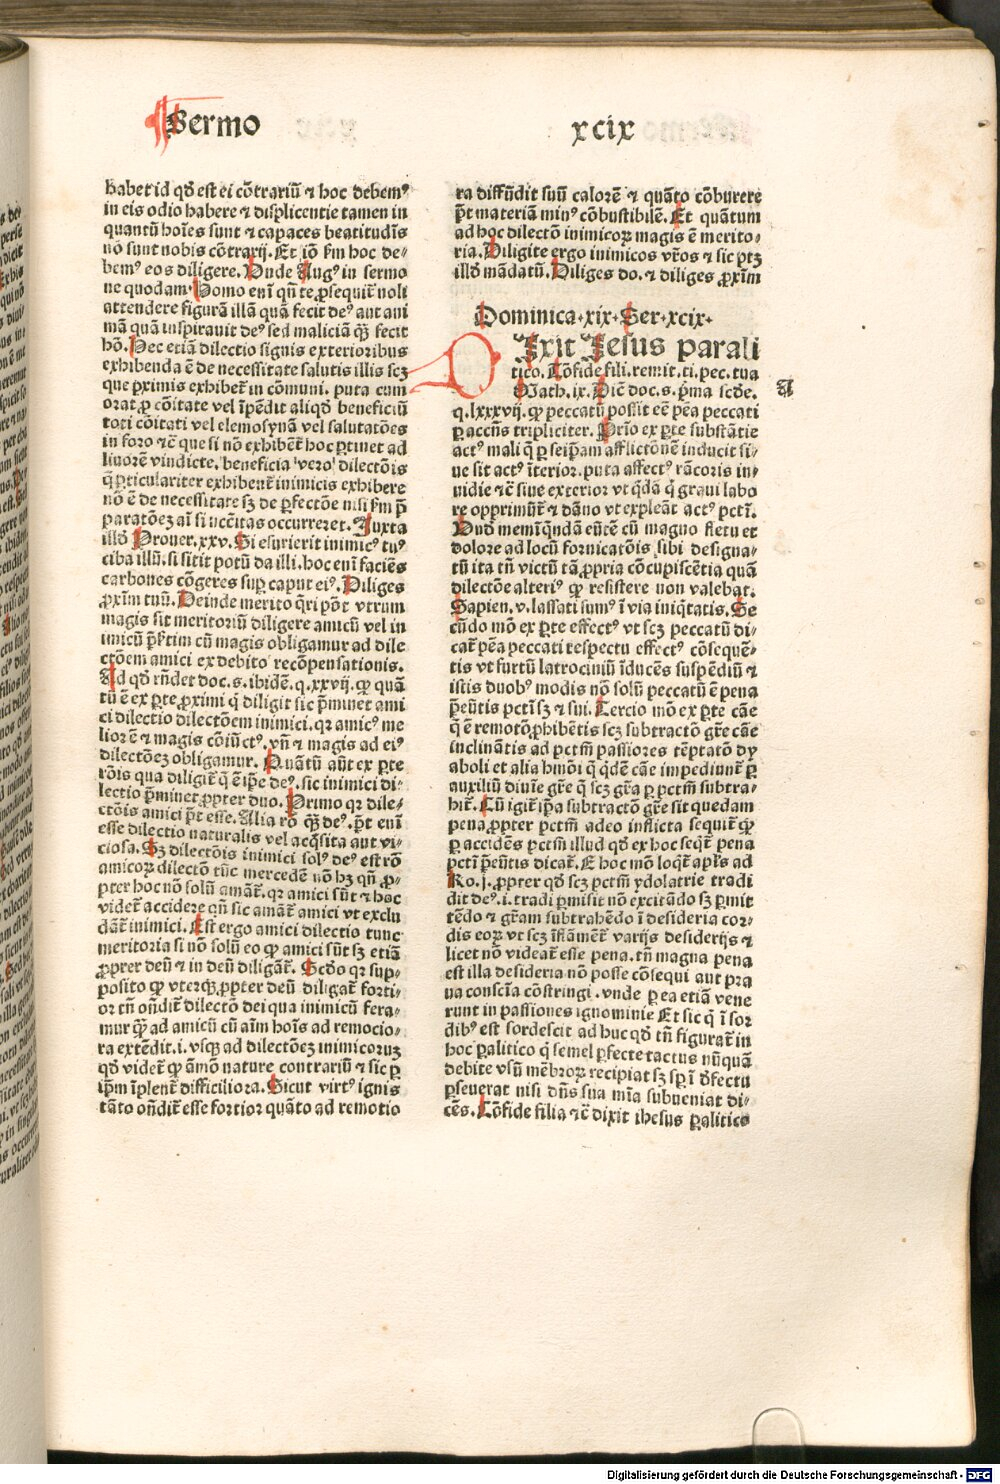 Sermo xcix
habet id qd̄ est ei cōtrariū ⁊ hoc debemꝰ
in eis odio habere ⁊ displicentie tamen in
quantū hoīes sunt ⁊ capaces beatitudīs
nō sunt nobis cōtrarij. Et iō ẜm hoc de⸗
bemꝰ eos diligere. Unde Augꝰ in sermo
ne quodam. Homo enī qñ te ꝓsequit̄ noli
attendere figurā illā quā fecit deꝰ aut ani
mā quā inspirauit deꝰ sed maliciā quā fecit
hō. Hec etiā dilectio signis exterioribus
exhibenda ē de necessitate salutis illis scꝫ
que ꝓximis exhibet̄ in cōmuni. puta cum
orat ꝓ cōitate vel īpēdit aliqd̄ beneficiū
toti cōitati vel elemosynā vel salutatōes
in foro ⁊c̄ que si nō exhibet̄ hoc ꝑtinet ad
liuorē vindicte. beneficia vero dilectōis
q̄ ꝑticulariter exhibent̄ inimicis exhibere
nō ē de necessitate sꝫ de ꝑfectōe nisi ẜm p̄
paratōeꝫ aī si nccitas occurreret. Juxta
illd̄ Prouer. xxv. Si esurierit inimicꝰ tuꝰ
ciba illū. si sitit potū da illi. hoc enī faciēs
carbones cōgeres suꝑ caput eiꝰ. Diliges
ꝓximū tuū. Deinde merito q̄ri pōt vtrum
magis sit meritoriū diligere amicū vel in
imicū p̄sertim cū magis obligamur ad dile
ctōem amici ex debito recōpensationis.
Ad qd̄ rñdet doc. s. ibidē. q. xxvij. qꝙ quā
tū ē ex ꝑte ꝓximi q̄ diligit̄ sic p̄minet ami
ci dilectio dilectōem inimici. qꝛ amicꝰ me
lior ē ⁊ magis cōiūctꝰ. vñ ⁊ magis ad eiꝰ
dilectōeꝫ obligamur. Quātū aūt ex ꝑte
rōis qua diligit̄ q̄ ē ip̄e deꝰ. sic inimici di⸗
lectio p̄minet ꝓpter duo. Primo qꝛ dile⸗
ctōis amici p̄t esse. Alia rō qꝫ deꝰ. p̄t enī
esse dilectio naturalis vel acq̄sita aut vi⸗
ciosa. Sꝫ dilectōis inimici solꝰ deꝰ est rō
amicoꝝ dilectō tūc mercedē nō hꝫ qñ ꝓ⸗
pter hoc nō solū amāt̄. qꝛ amici sūt ⁊ hoc
videt̄ accidere qñ sic amāt̄ amici vt exclu
dāt̄ inimici. Est ergo amici dilectio tunc
meritoria si nō solū eo ꝙ amici sūt sꝫ etiā
ꝓprer deū ⁊ in deū diligāt̄. Scdo qꝛ sup⸗
posito ꝙ vterqꝫ ꝓpter deū diligat̄ forti⸗
or tñ ondit̄ dilectō dei qua inimicū fera⸗
mur quā ad amicū cū aīm hoīs ad remocio⸗
ra extēdit. i. vsqꝫ ad dilectōeꝫ inimicoruꝫ
qd̄ videt̄ ꝙ amō nature contrariū ⁊ sic ꝑ
ip̄m īplent̄ difficiliora. Sicut virtꝰ ignis
tāto ondit̄ esse fortior quāto ad remotio
ra diffūdit suū calorē ⁊ quāto cōburere
p̄t materiā minꝰ cōbustibilē. Et quātum
ad hoc dilectō inimicoꝝ magis ē merito⸗
ria. Diligite ergo inimicos vr̄os ⁊ sic ptꝫ
illd̄ mādatū. Diliges do. ⁊ diliges ꝓxim̄
Dominica xix. Ser. xcix.
Dixit Jesus parali
tico. Cōfide fili. remit. ti. pec. tua
Math. ix. Dic̄ doc. s. p̄ma scd̄e.
a
q. lxxxvij. ꝙ peccatū possit eē pēa peccati
ꝑ accn̄s tripliciter. Prīo ex ꝑte substātie
actꝰ mali q̄ ꝑ seip̄am afflictōnē inducit si⸗
ue sit actꝰ īterior. puta affectꝰ rācoris in⸗
uidie ⁊c̄ siue exterior vt q̄dā q̄ graui labo
re opprimūt̄ ⁊ dāno vt expleāt actꝰ pctī.
Unde memī quēdā euntē cū magno fletu et
dolore ad locū fornicatōis sibi designa⸗
tū ita tñ victū tā ꝓpria cōcupiscētia quā
dilectōe alteriꝰ ꝙ resistere non valebat.
Sapien. v. lassati sumꝰ ī via iniqtatis. Se
cūdo mō ex ꝑte effectꝰ vt scꝫ peccatū di⸗
cat̄ pēa peccati respectu effectꝰ cōsequē⸗
tis vt furtū latrociniū īducēs suspēdiū ⁊
istis duobꝰ modis nō solū peccatū ē pena
p̄cūtis pctī sꝫ ⁊ sui. Tercio mō ex ꝑte cāe
q̄ ē remotō ꝓhibētis scꝫ subtractō gr̄e cāe
inclinātis ad pctm̄ passiores tēptatō dy
aboli et alia hmōi q̄ qdē cāe impediunt̄ ꝑ
auxiliū diuīe gr̄e q̄ scꝫ gr̄a ꝑ pctm̄ subtra⸗
hit̄. Cū igit̄ ip̄a subtractō gr̄e sit quedam
pena ꝓpter pctm̄ adeo inflicta sequit̄ ꝙ
ꝑ accidēs pctm̄ illud qd̄ ex hoc seqt̄ pena
pctī p̄cūtis dicat̄. E hoc mō loqt̄ apl̄s ad
Ro. j. ꝓpter qd̄ scꝫ pctm̄ ydolatrie tradi
dit deꝰ. i. tradi ꝑmisit nō excitādo sꝫ ꝑmit
tēdo ⁊ gr̄am subtrahēdo ī desideria cor⸗
dis eoꝝ vt scꝫ īflāmēt̄ varijs desiderijs ⁊
licet nō videat̄ esse pena. tñ magna pena
est illa desideria nō posse cōsequi aut pra
ua conscīa cōstringi. vnde ꝑ ea etiā vene
runt in passiones ignominie Et sic q̄ ī sor
dibꝰ est sordescit ad huc qd̄ tñ figurat̄ in
hoc ꝑalitico q̄ semel ꝑfecte tactus nūquā
debite vsū mēbroꝝ recipiat sꝫ sꝑ ī defectu
ꝑseuerat nisi dñs sua mīa subueniat di⸗
cēs. Cōfide filia ⁊c̄ dixit ihesus ꝑalitico
Digitalisierung gefördert durch die Deutsche Forschungsgemeinschaft - DFG